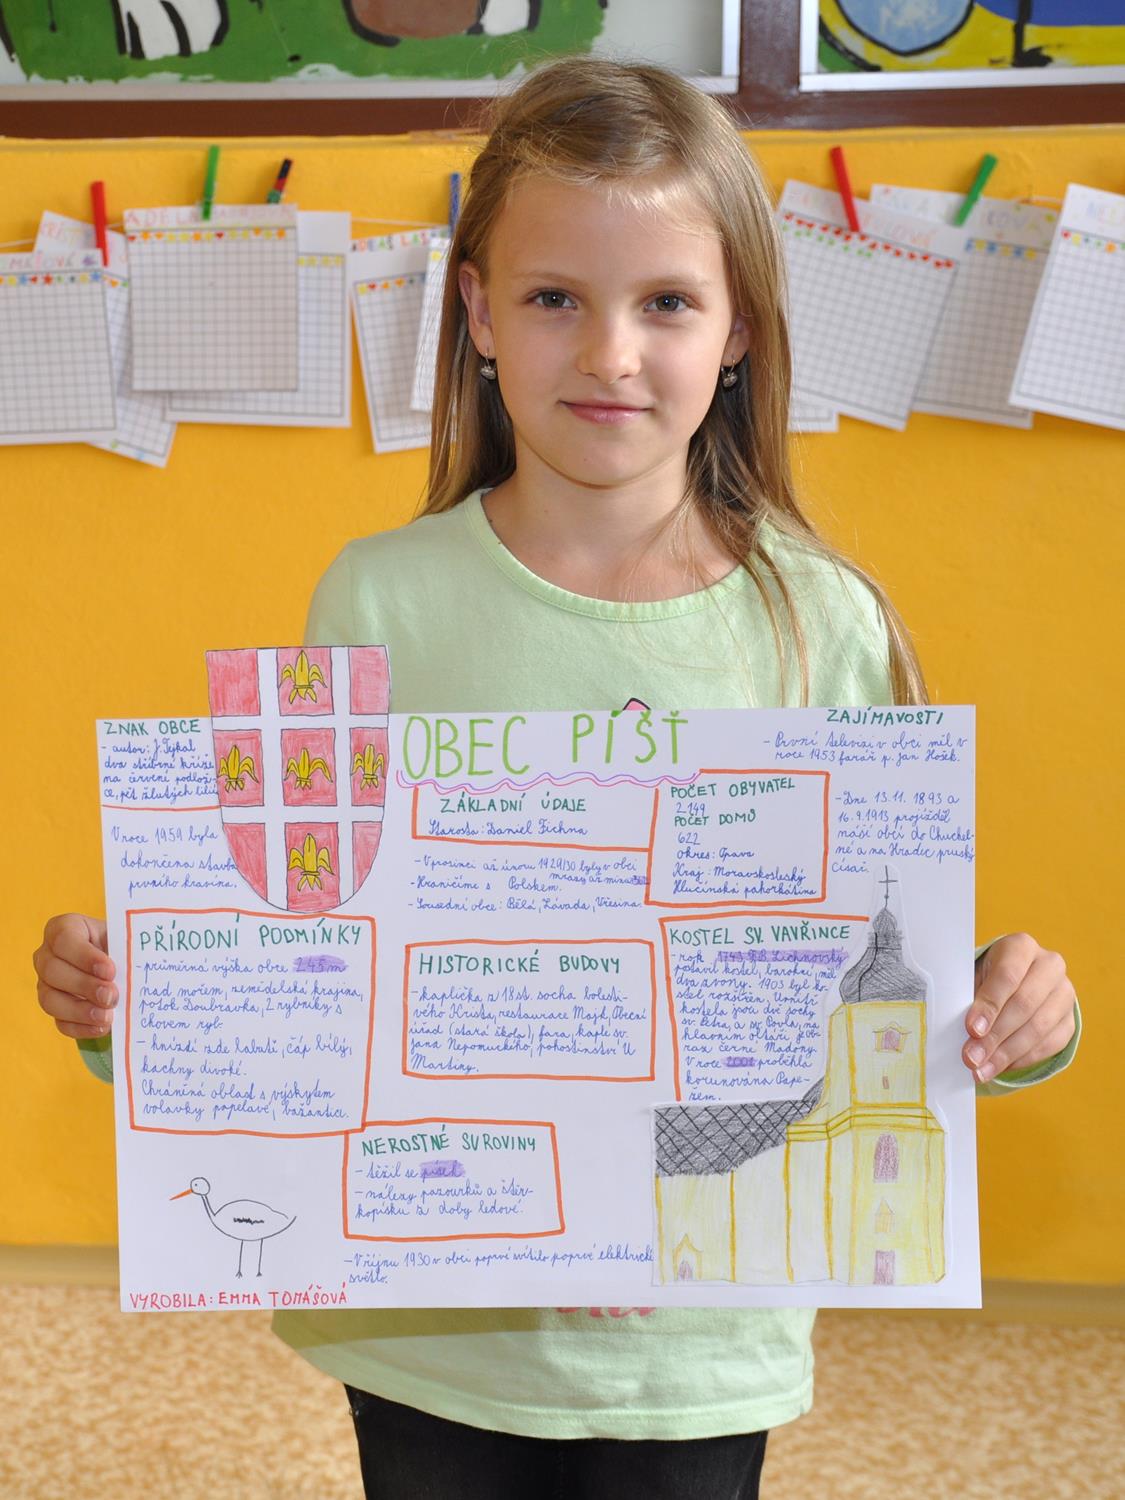 OBEC PÍŠŤ
ZNAK OBCE
- autor: J. Tejkal
dva stříbrné kříže
na červené podlož-
ce, pět žlutých lilií
V roce 1959 byla
dokončena stavba
prvního kravína.
PŘÍRODNÍ PODMÍNKY
- průměrná výška obce 245 m
nad mořem, zemědělská krajina,
potok Doubravka, 2 rybníky s
chovem ryb.
- hnízdí zde labutě, čáp bílý,
kachny divoké.
Chráněná oblast s výskytem
volavky popelavé, bažantici.
ZÁKLADNÍ ÚDAJE
Starosta: Daniel Fichna
- V prosinci až únoru 1929/30 byly v obci
mrazy až mínus
- Hraničíme s Polskem.
- Sousední obce: Bělá, Závada, Vřesina.
POČET OBYVATEL
2 149
POČET DOMŮ
622
okres: Opava
Kraj: Moravskoslezský
Hlučínská pahorkatina
ZAJÍMAVOSTI
- První televizi v obci měl v
roce 1953 farář p. Jan Hošek.
- Dne 13.11. 1893 a
16.9.1913 projížděl
naší obcí do Chuchel-
né a na Hradec pruský
císař.
HISTORICKÉ BUDOVY
- kaplička z 18.st. socha bolesti-
vého Krista, restaurace Majd, Obecní
úřad (stará škola), fara, kaple sv.
Jana Nepomuckého, pohostinství U
Martiny.
KOSTEL SV. VAVŘINCE
- rok 1743 F.B. Lichnovský
postavil kostel, barokní, měl
dva zvony. 1903 byl ko-
stel rozšířen. Uvnitř
kostela jsou dvě sochy
sv. Petra, a sv. Pavla, na
hlavním oltáři je ob-
raz černé Madony.
V roce 2001 proběhla
korunována Pape-
žem.
NEROSTNÉ SUROVINY
- těžil se písek
- nálezy pazourků a štěr-
kopísku z doby ledové.
- V říjnu 1930 v obci poprvé svítilo poprvé elektrické
světlo.
VYROBILA: EMMA TOMÁŠOVÁ